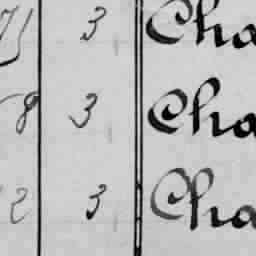 71 3 Cha
8 3 Cha
2 3 Cha